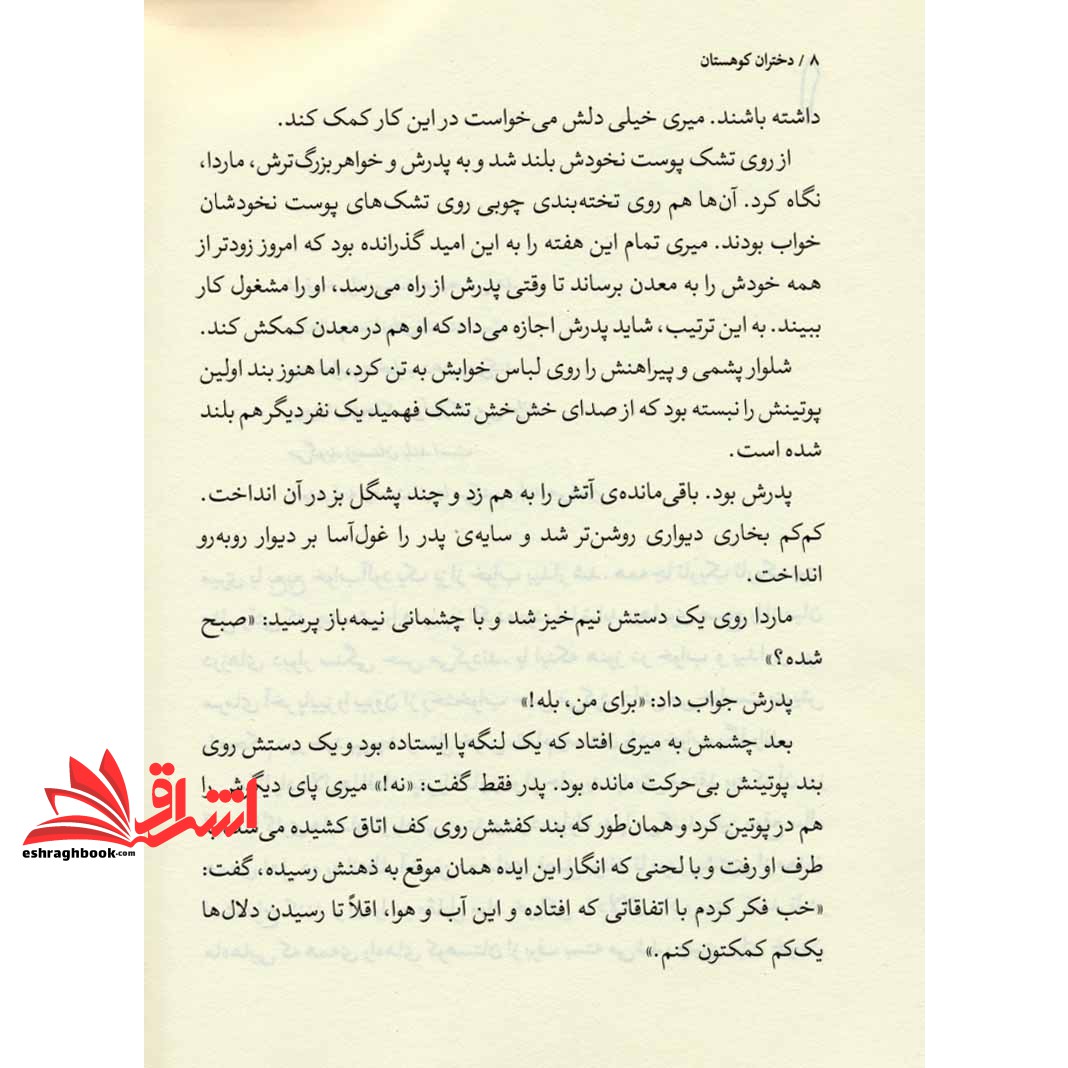 ۸ / دختران کوهستان
داشته باشند. میری خیلی دلش می‌خواست در این کار کمک کند.
از روی تشک پوست نخودش بلند شد و به پدرش و خواهر بزرگ‌ترش، ماردا،
نگاه کرد. آن‌ها هم روی تخته‌بندی چوبی روی تشک‌های پوست نخودشان
خواب بودند. میری تمام این هفته را به این امید گذرانده بود که امروز زودتر از
همه خودش را به معدن برساند تا وقتی پدرش از راه می‌رسد، او را مشغول کار
ببیند. به این ترتیب، شاید پدرش اجازه می‌داد که او هم در معدن کمکش کند.
شلوار پشمی و پیراهنش را روی لباس خوابش به تن کرد، اما هنوز بند اولین
پوتینش را نبسته بود که از صدای خش‌خش تشک فهمید یک نفر دیگر هم بلند
شده است.
پدرش بود. باقی‌مانده‌ی آتش را به هم زد و چند پشگل بز در آن انداخت.
کم‌کم بخاری دیواری روشن‌تر شد و سایه‌ی پدر را غول‌آسا بر دیوار روبه‌رو
انداخت.
ماردا روی یک دستش نیم‌خیز شد و با چشمانی نیمه‌باز پرسید: «صبح
شده؟»
پدرش جواب داد: «برای من، بله!»
بعد چشمش به میری افتاد که یک لنگه‌پا ایستاده بود و یک دستش روی
بند پوتینش بی‌حرکت مانده بود. پدر فقط گفت: «نه!» میری پای دیگرش را
هم در پوتین کرد و همان‌طور که بند کفشش روی کف اتاق کشیده
طرف او رفت و با لحنی که انگار این ایده همان موقع به ذهنش رسیده، گفت:
«خب فکر کردم با اتفاقاتی که افتاده و این آب و هوا، اقلاً تا رسیدن دلال‌ها
یک‌کم کمکتون کنم.»
اشراق
eshraghbook.com